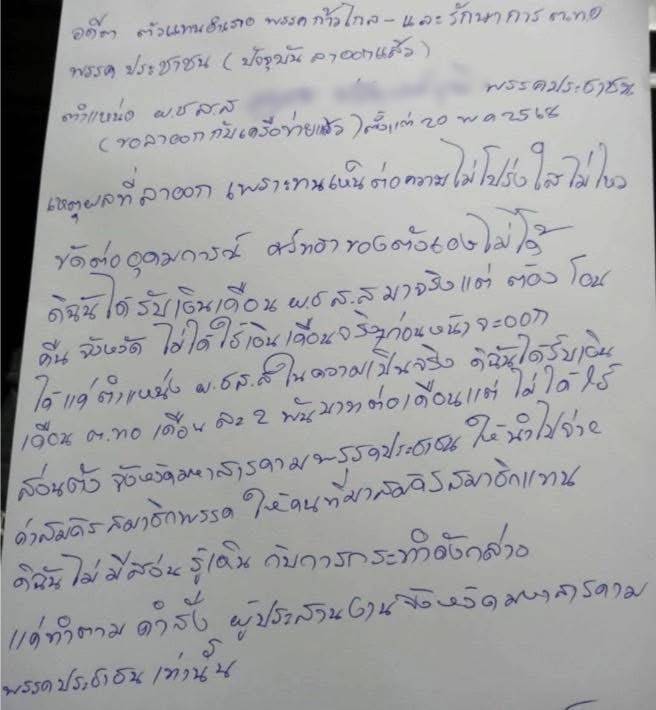 อดีต ตัวแทนอำเภอ พรรคก้าวไกล - และรักษาการ ต.ทอ
พรรคประชาชน (ปัจจุบันลาออกแล้ว)
ตำแหน่ง ผ.ช ส.ส พรรคประชาชน
(ขอลาออกกับเครือข่ายแล้ว) ตั้งแต่ 20 พ.ค 2568
เหตุผลที่ลาออก เพราะทนเห็นต่อความไม่โปร่งใสไม่ไหว
ขัดต่ออุดมการณ์ ศรัทธาของตัวเองไม่ได้
ดิฉันได้รับเงินเดือน ผ.ช ส.ส มาจริงแต่ ต้องโอน
คืน จังหวัด ไม่ได้ใช้เงินเดือนจริงๆก่อนหน้าจะออก
ได้แค่ตำแหน่ง ผ.ช ส.ส ในความเป็นจริง ดิฉันได้รับเงิน
เดือน ต.ทอ เดือนละ 2 พันบาทต่อเดือนแต่ ไม่ได้ใช้
ส่วนตัว จังหวัดมหาสารคามพรรคประชาชน ให้นำไปจ่าย
ค่าสมัครสมาชิกพรรค ให้คนที่มาสมัครสมาชิกแทน
ดิฉันไม่มีส่วนรู้เห็น กับการกระทำดังกล่าว
แค่ทำตาม คำสั่ง ผู้ประสานงานจังหวัดมหาสารคาม
พรรคประชาชนเท่านั้น